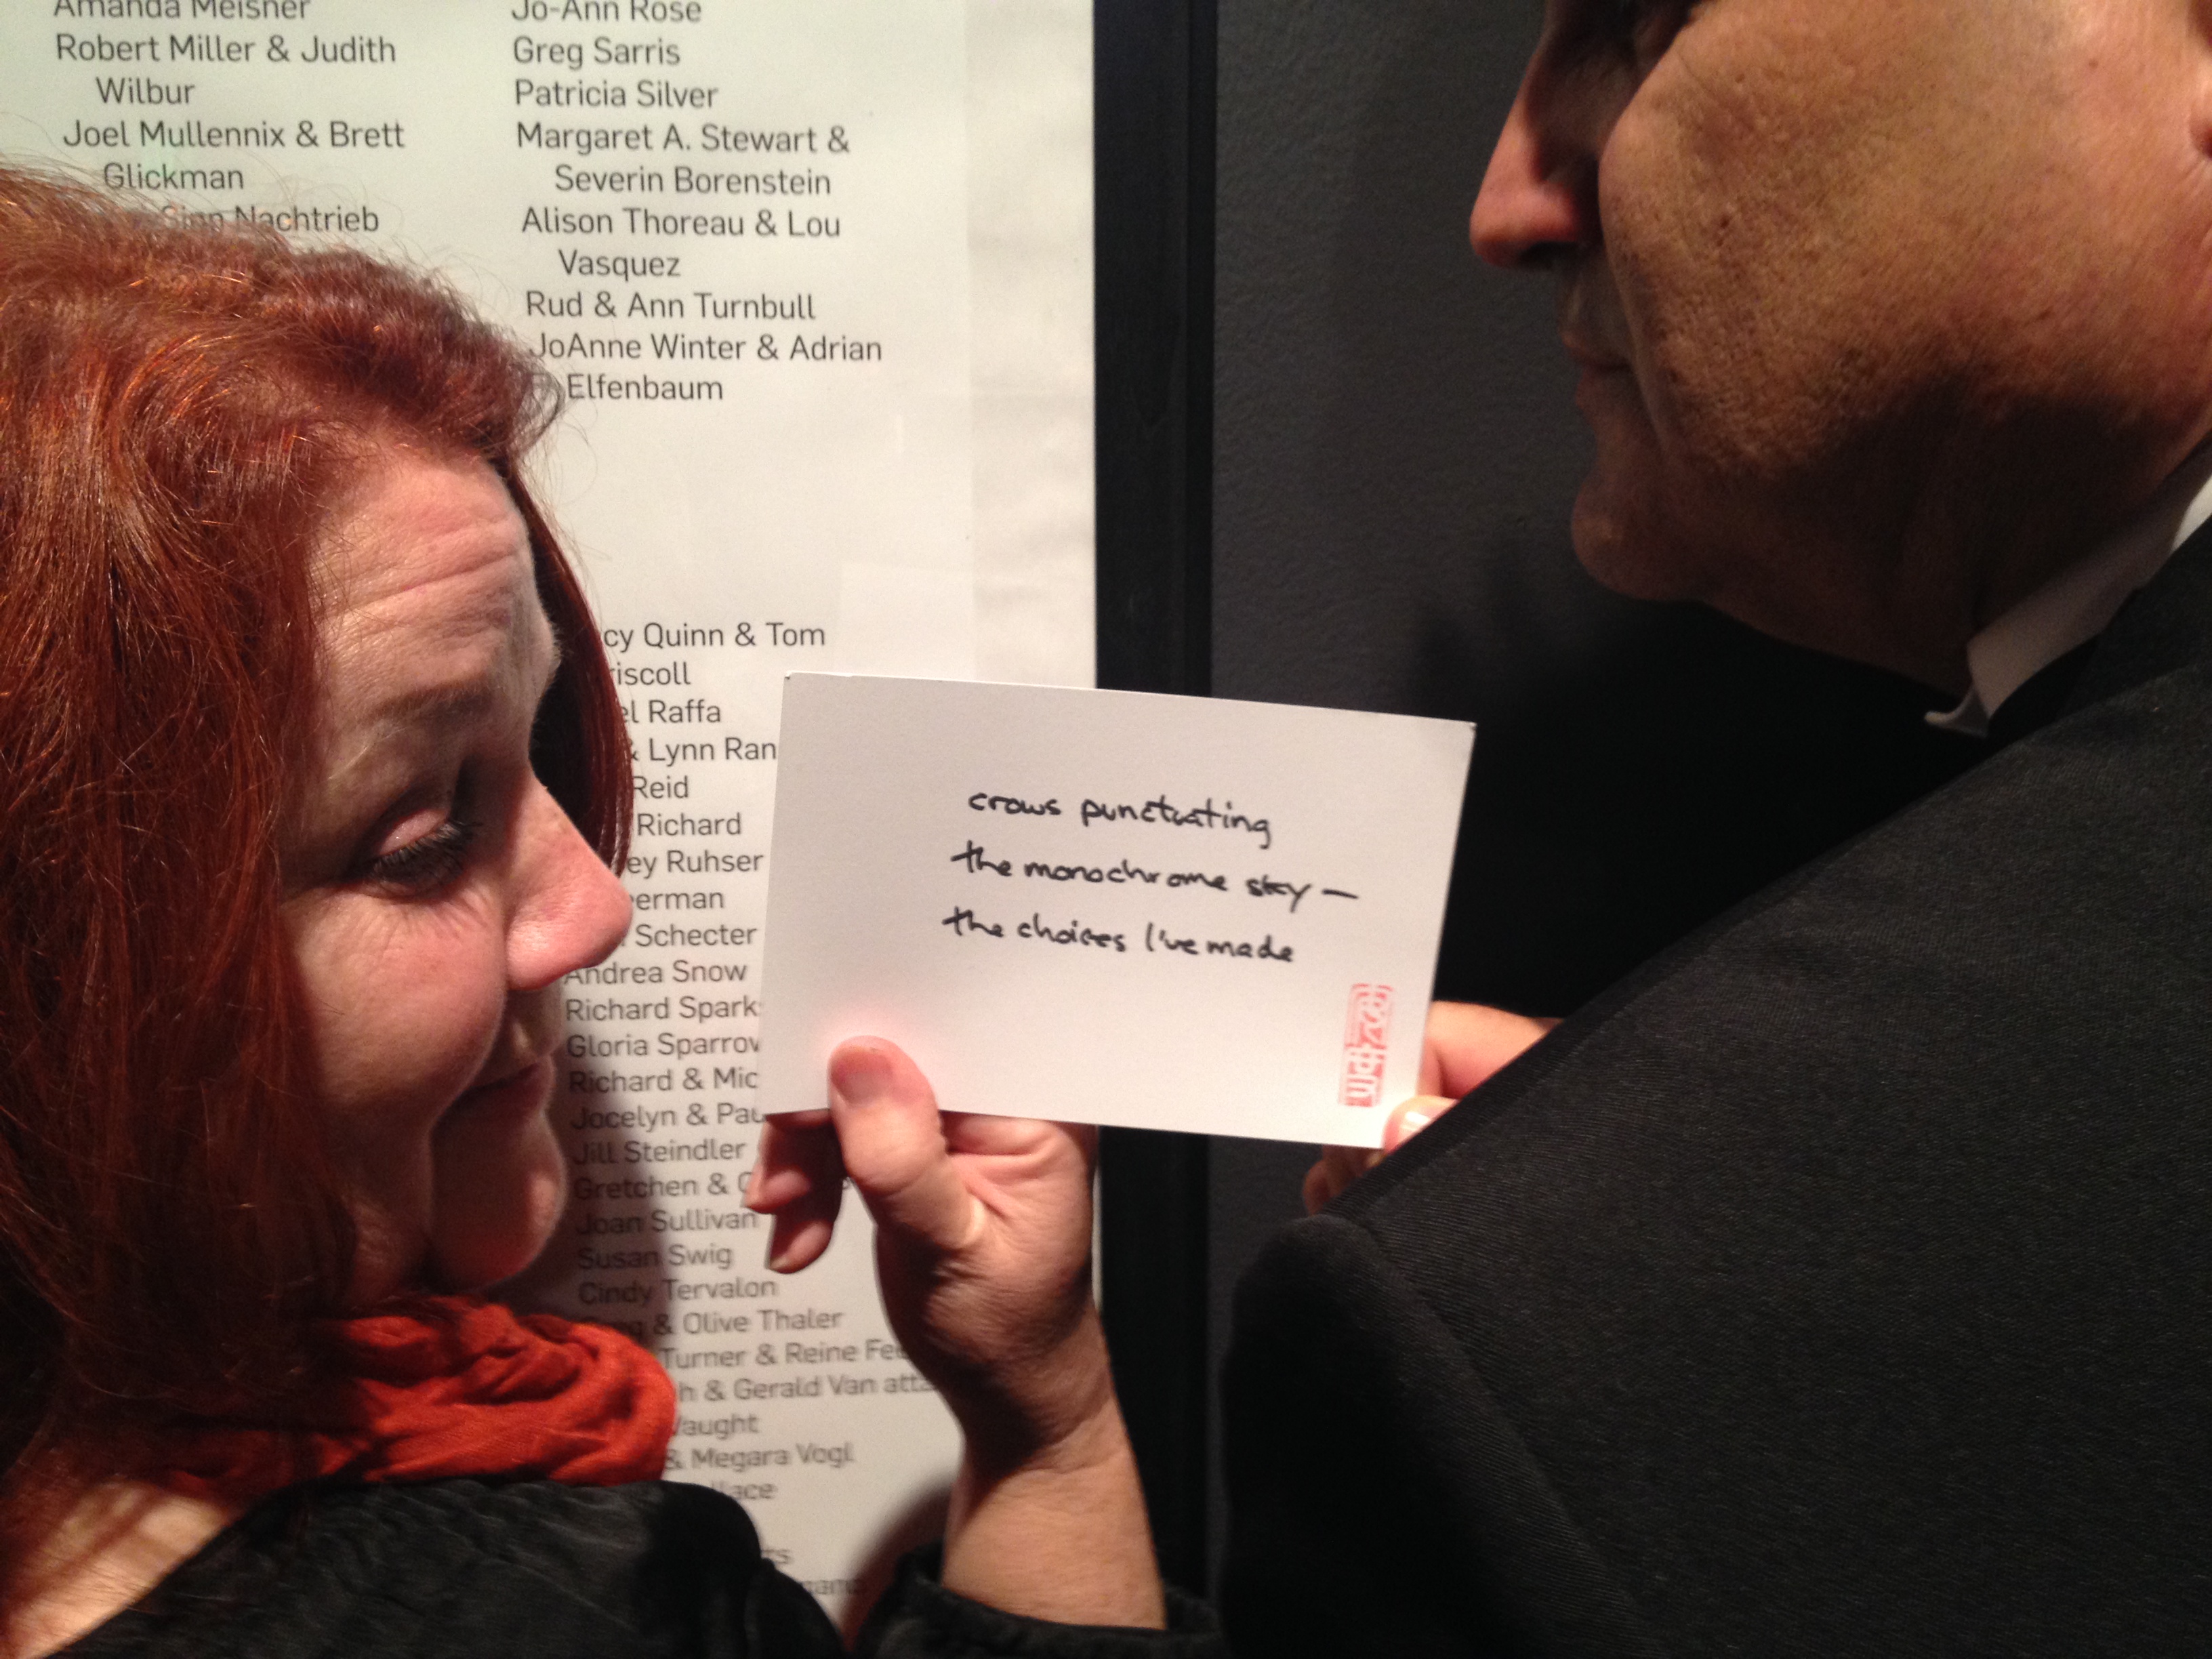 Amanda Meisner
Robert Miller & Judith
Wilbur
Joel Mullennix & Brett
Glickman
Sinn Nachtrieb
Jo-Ann Rose
Greg Sarris
Patricia Silver
Margaret A. Stewart &
Severin Borenstein
Alison Thoreau & Lou
Vasquez
Rud & Ann Turnbull
JoAnne Winter & Adrian
Elfenbaum
Quinn & Tom
Raffa
& Lynn
Reid
Richard
Ruhser
Schecter
Andrea Snow
Richard
Gloria
Richard &
Jocelyn &
Jill Steindler
Gretchen &
Joan Sullivan
Susan Swig
Cindy Tervalon
& Olive Thaler
Turner & Reine
& Gerald Van
& Megara Vogl
crows punctuating
the monochrome sky —
the choices I've made